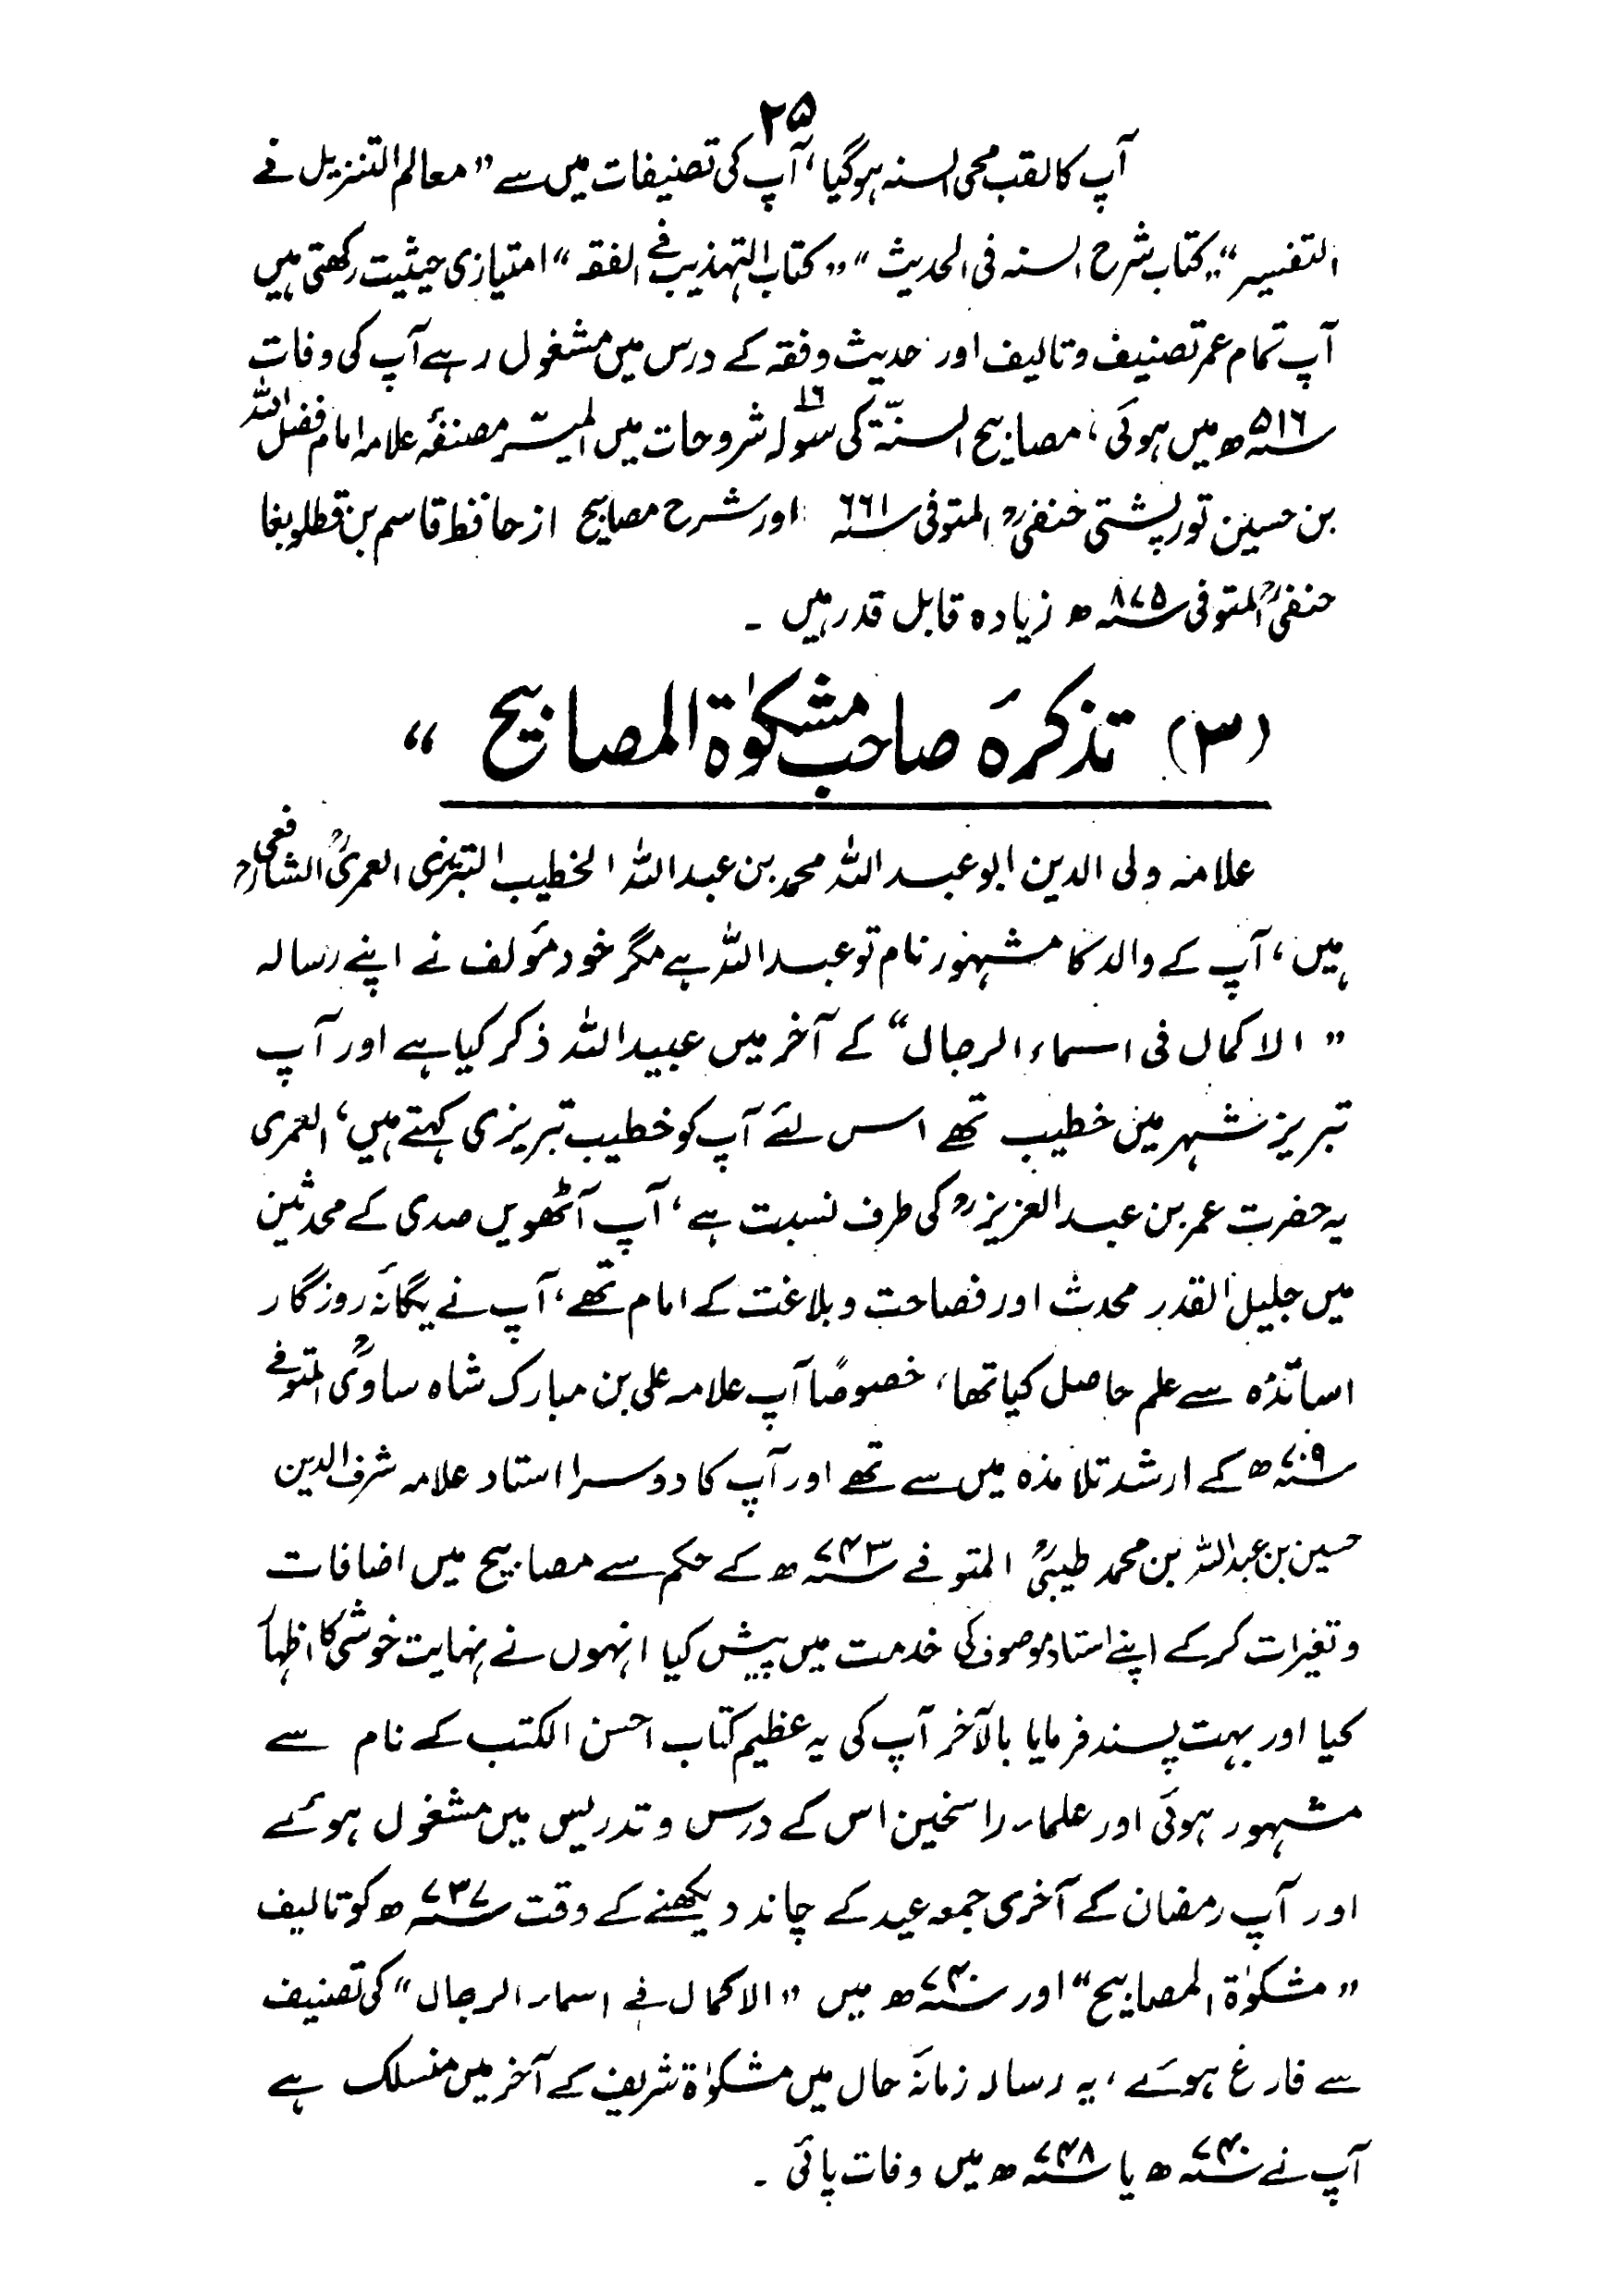 ۲۵
آپ کا لقب محی السنہ ہوگیا، آپ کی تصنیفات میں سے ”معالم التنزیل فے
التفسیر“ ”کتاب شرح السنہ فی الحدیث“ ”کتاب التہذیب فے الفقہ“ امتیازی حیثیت رکھتی ہیں
آپ تمام عمر تصنیف و تالیف اور حدیث و فقہ کے درس میں مشغول رہے آپ کی وفات
۵۱۶ھ میں ہوئی، مصابیح السنّۃ کی سولہ ۱۶ شروحات میں المیسّر مصنفۂ علامہ امام فضل اللہ
بن حسین تورپشتی حنفیؒ المتوفی ۶۶۱ اور شرح مصابیح از حافظ قاسم بن قطلوبغا
حنفیؒ المتوفی ۸۷۵ھ زیادہ قابل قدر ہیں ۔
(۳) تذکرۂ صاحب مشکوٰۃ المصابیح “
علامہ ولی الدین ابو عبداللہ محمد بن عبداللہ الخطیب التبریزی العمریؒ الشافعیؒ
ہیں، آپ کے والد کا مشہور نام تو عبداللہ ہے مگر خود مؤلف نے اپنے رسالہ
” الاکمال فی اسماء الرجال“ کے آخر میں عبیداللہ ذکر کیا ہے اور آپ
تبریز شہر میں خطیب تھے اس لئے آپ کو خطیب تبریزی کہتے ہیں، العمری
یہ حضرت عمر بن عبدالعزیزؒ کی طرف نسبت ہے، آپ آٹھویں صدی کے محدثین
میں جلیل القدر محدث اور فصاحت و بلاغت کے امام تھے، آپ نے یگانۂ روزگار
اساتذہ سے علم حاصل کیا تھا، خصوصًا آپ علامہ علی بن مبارک شاہ ساویؒ المتوفے
۷۰۹ھ کے ارشد تلامذہ میں سے تھے اور آپ کا دوسرا استاد علامہ شرف الدین
حسین بن عبداللہ بن محمد طیبیؒ المتوفے ۷۴۳ھ کے حکم سے مصابیح میں اضافات
و تغیرات کرکے اپنے استاد موصوف کی خدمت میں پیش کیا انہوں نے نہایت خوشی کا اظہا
کیا اور بہت پسند فرمایا بالآخر آپ کی یہ عظیم کتاب احسن الکتب کے نام سے
مشہور ہوئی اور علماء راسخین اس کے درس و تدریس میں مشغول ہوئے
اور آپ رمضان کے آخری جمعہ عید کے چاند دیکھنے کے وقت ۷۳۷ھ کو تالیف
”مشکوٰۃ المصابیح“ اور ۷۴۰ھ میں ”الاکمال فے اسماء الرجال“ کی تصنیف
سے فارغ ہوئے، یہ رسالہ زمانۂ حال میں مشکوٰۃ شریف کے آخر میں منسلک ہے
آپ نے ۷۴۰ھ یا ۷۴۸ھ میں وفات پائی ۔